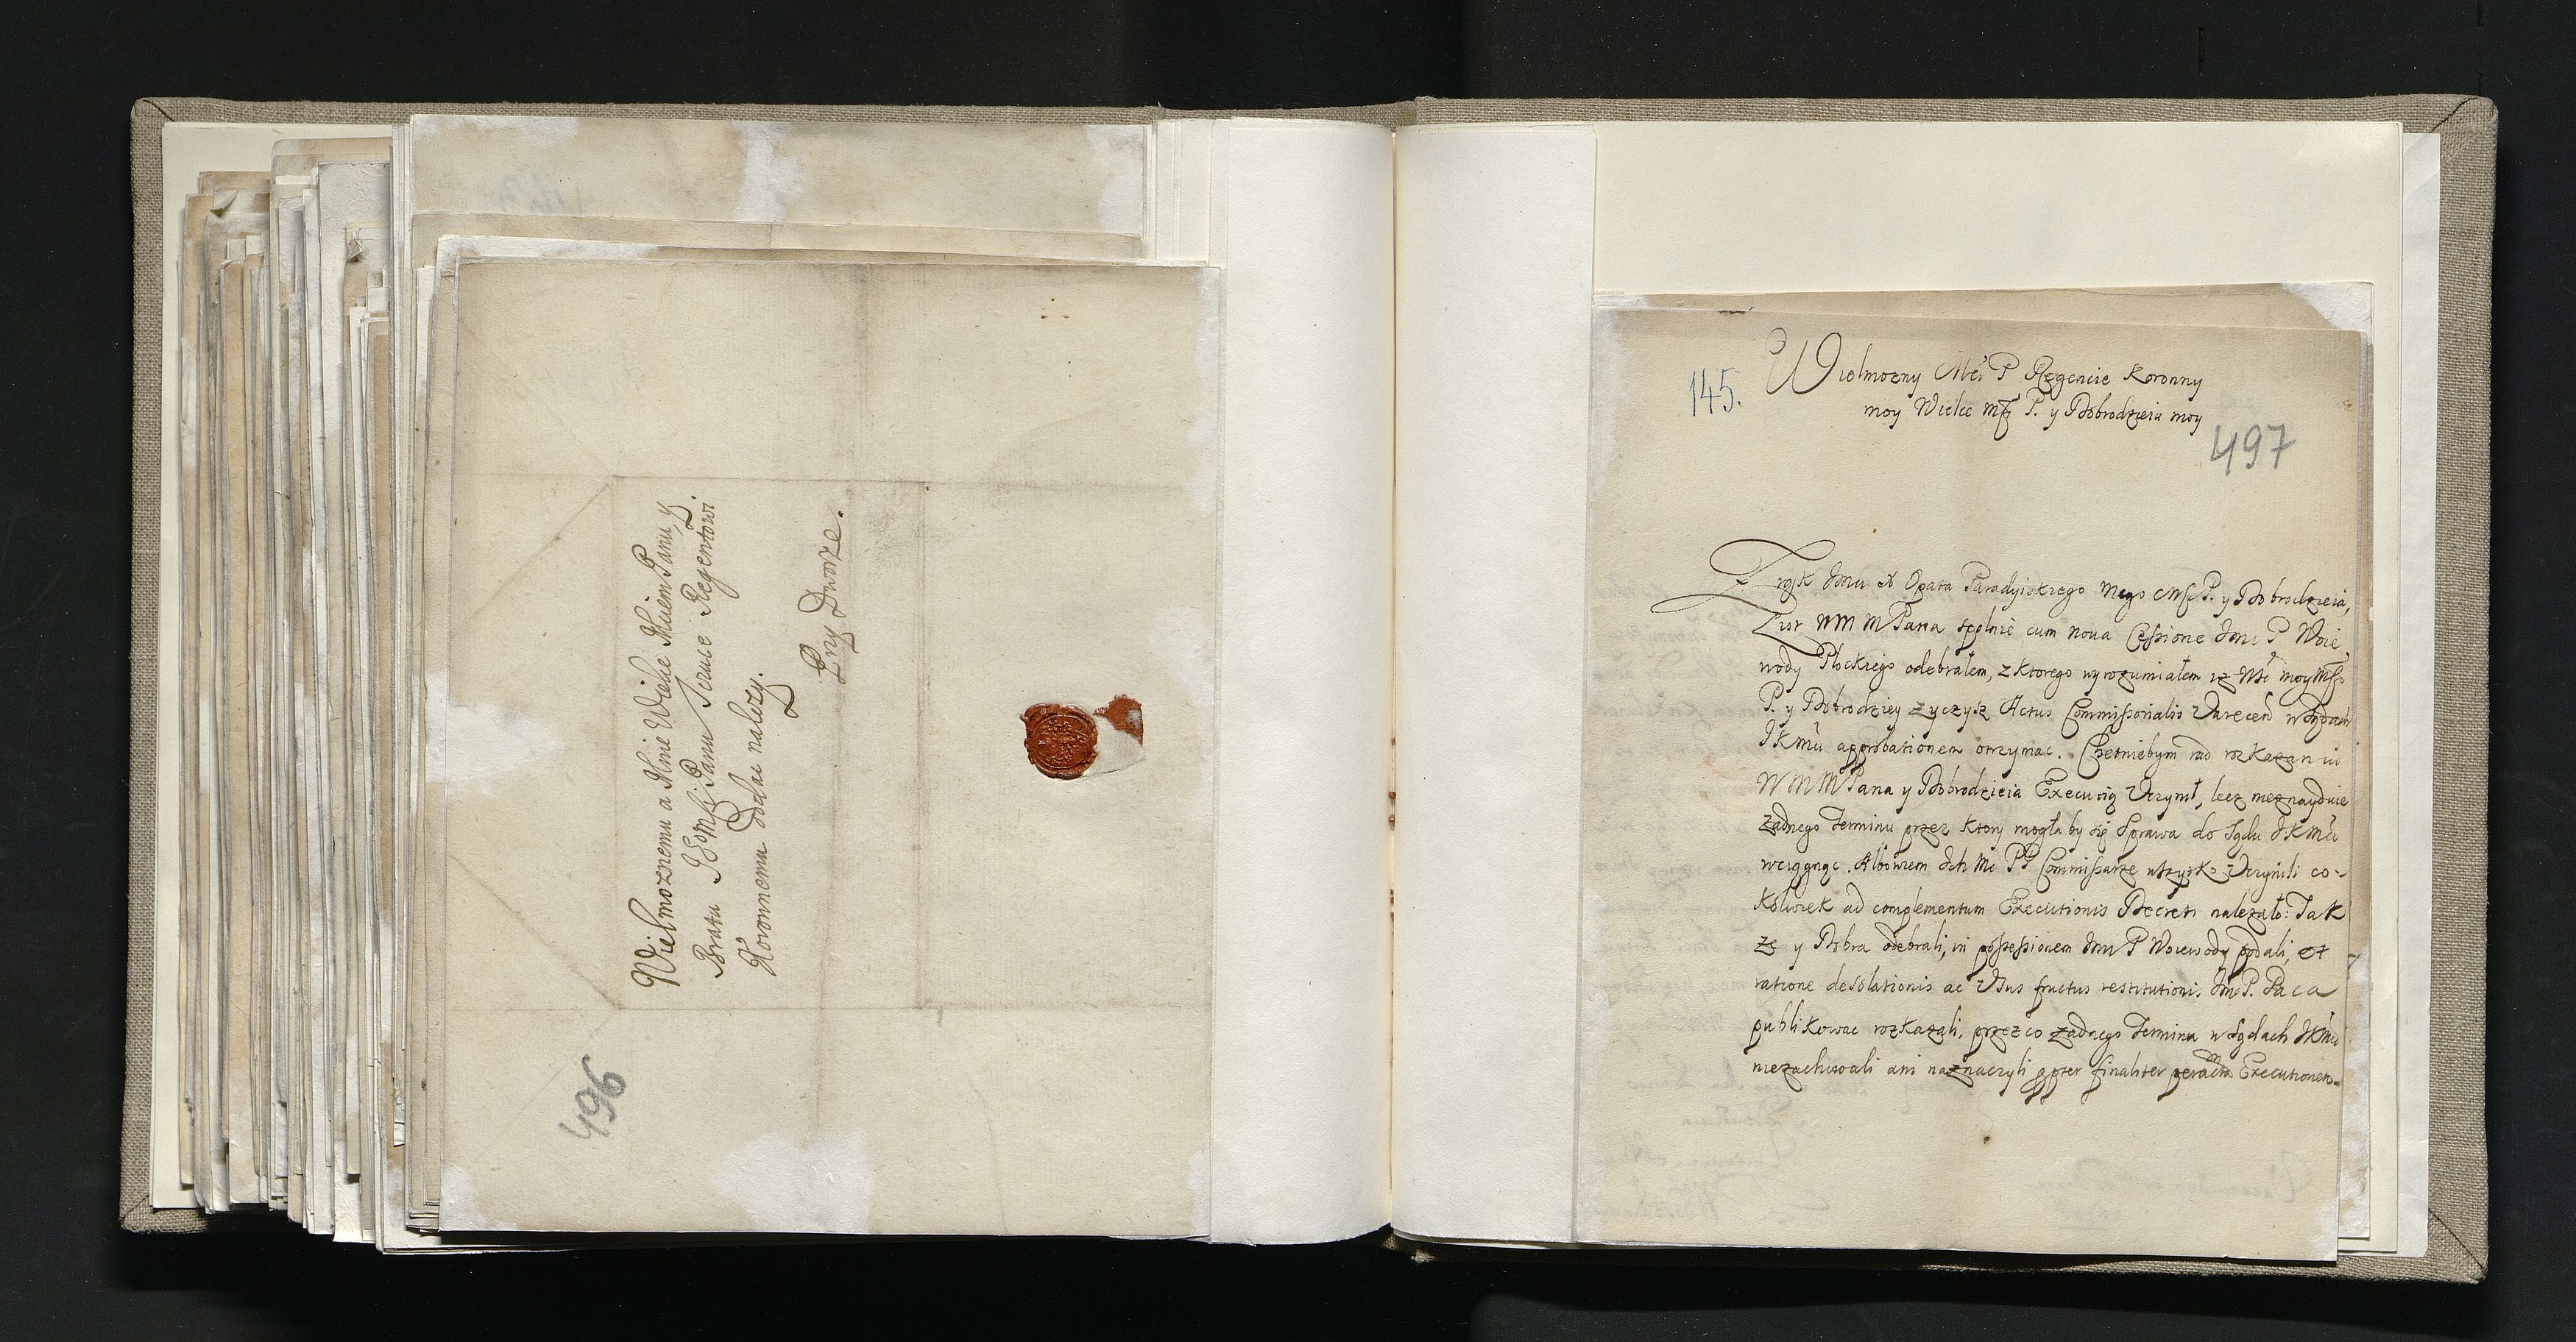 Wielmoznemu a Mnie Wielce Młciem Panu y
Bratu JEomści Panu Scruce Regentowi
Koronnemu oddac nalezy.
Przy Dworze.
496
145.
Wielmozny Mći P Regencie Koronny
moy Wielce mśz P. y Dobrodzieiu moy
497
Z rąk Jmci X Opata Paradyiskiego mego Mśc P. y Dobrodzieia,
List WM M Pana spolnie cum noua Cessione Jmci P Woie
wody Płockiego odebrałem, z ktorego wyrozumiałem iz Wść moy Mśc
P. y Dobrodziey zyczysz Actus Commissorialis Varecen w Sądach
JKMci approbationem otrzymac. Chętniebym rad rozkazaniu
WM M Pana y Dobrodzieia Executią Vczynił, lecz nieznayduie
zadnego Terminu przez ktory mogła by się Sprawa do Sądu JKMci
wciągnąc. Albowiem Ich Mć PP Commissarze wszystko Vczynili co-
kolwiek ad complementum Executionis Decreti nalezało: Tak
ze y Dobra odebrali, in possessionem Jmci P Woiewody podali, et
ratione desolationis ac Vsus fructus restitutionis Jmci P. Paca
publikowac rozkazali, przez co zadnego Terminu w Sądach JKMci
niezachowali ani naznaczyli ppter finaliter peracta Executionem